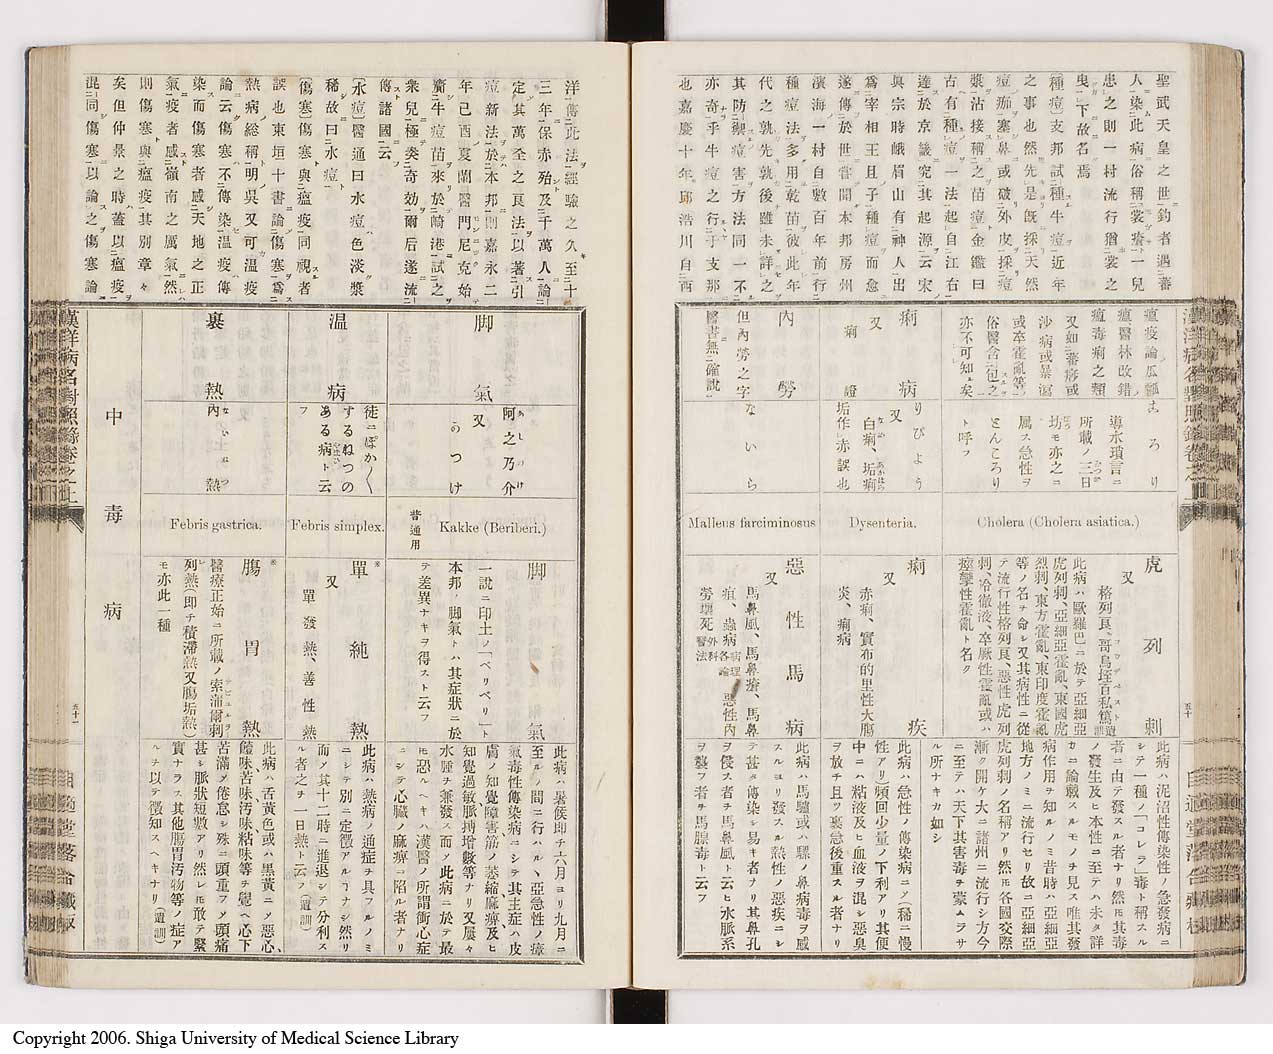 聖武天皇之世釣者遇蕃
人染此病俗稱裳瘡一兒
患之則一村流行猶裳之
曳下故名焉
種痘支邦試種牛痘近年
之事也然先是既採天然
痘痂塞鼻或破外皮採
漿沾接稱之苗痘金鑑曰
古有種痘一法起自江右
達於京畿究其起源云宋
眞宗時峨眉山有神人出
爲宰相王旦子種痘而愈
遂傳於世嘗聞本邦房州
濱海一村自數百年前行
種痘法多用乾苗彼此年
代之孰先孰後雖未詳之
其防禦痘害方法同一不
亦奇乎牛痘之行于支那
也嘉慶十年邱浩川自西
瘟疫論瓜瓤
瘟醫林改錯
瘟毒痢之類
又如蕃痧或
沙病或暴瀉
或卒霍亂等
俗醫含包之
亦不可知矣
ころり
導水瑣言ニ
所載ノ三日
坊モ亦之ニ
属ス急性ヲ
とんころり
ト呼フ
Cholera (Cholera asiatica.)
虎列剌
又
格列良、哥烏垤百私篤
此病ハ歐羅巴ニ於テ亞細亞
虎列剌、亞細亞霍亂、東國虎
烈剌、東方霍亂、東印度霍亂
等ノ名ヲ命シ又其病性ニ從
テ流行性格列良、惡性虎列
剌、冷徹液、卒厥性霍亂或ハ
痙攣性霍亂ト名ク
此病ハ泥沼性傳染性ノ急發病ニ
シテ一種ノ「コレラ」毒ト稱スル
者ニ由テ發スル者ナリ然レ𪜈其毒
ノ發生及ヒ本性ニ至テハ未タ詳
カニ論載スルモノヲ見ス唯其發
病作用ヲ知ルノミ昔時ハ亞細亞
地方ノミニ流行セリ故ニ亞細亞
虎列剌ノ名稱アリ然レ𪜈各國交際
漸ク開ケ大ニ諸州ニ流行シ方今
ニ至テハ天下其害毒ヲ蒙ムラサ
ル所ナキカ如シ
痢病
又
痢證
りびよう
又
白痢、垢痢
垢作赤誤也
Dysenteria.
痢疾
又
赤痢、實布的里性大腸
炎、痢病
此病ハ急性ノ傳染病ニノ稀ニ慢
性アリ頻回少量ノ下利アリ其便
中ニハ粘液及ヒ血液ヲ混シ惡臭
ヲ放チ且ツ裏急後重スル者ナリ
內勞
但內勞之字
醫書無確說
ないら
Malleus farciminosus
惡性馬病
又
馬鼻風、馬鼻瘡、馬鼻
疽、蟲病 病理各論 惡性內
勞壞死 外科醫法
此病ハ馬驢或ハ騾ノ鼻病毒ヲ感
スルヨリ發スル熱性ノ惡疾ニシ
テ甚タ傳染シ易キ者ナリ其鼻孔
ヲ侵ス者ヲ馬鼻風ト云ヒ水脈系
ヲ襲フ者ヲ馬腺毒ト云フ
五十
洋傳此法經驗之久至十
三年保赤殆及千萬人論
定其萬全之良法以著引
痘新法於本邦則嘉永二
年己酉夏蘭醫門尼克始
齎牛痘苗來於崎港試之
衆兒極奏奇効爾后遂流
傳諸國云
〔水痘〕醫通曰水痘色淡漿
稀故曰水痘
〔傷寒〕傷寒與瘟疫同視者
誤也東垣十書論傷寒爲
熱病総稱明吳又可温疫
論云傷寒不傳染温疫傳
染而傷寒者感天地之正
氣疫者感嶺南之厲氣然
則傷寒與瘟疫其別章々
矣但仲景之時蓋以瘟疫
混同傷寒以論之傷寒論
脚氣
阿之乃介
又
かつけ
Kakke (Beriberi.)
普通用
脚氣
一說ニ印土ノ「ベリベリ」ト
本邦ノ脚氣トハ其症狀ニ於
テ差異ナキヲ得スト云フ
此病ハ暑候即チ六月ヨリ九月ニ
至ルノ間ニ行ハルヽ亞急性ノ瘴
氣毒性傳染病ニシテ其主症ハ皮
膚ノ知覺障害筋ノ萎縮麻痺及ヒ
知覺過敏脈搏増數等ナリ又屢々
水腫ヲ兼發ス而ノ此病ニ於テ最
モ恐ルヘキハ漢醫ノ所謂衝心症
ニシテ心臟ノ麻痺ニ陷ル者ナリ
温病
徒ニぽか〱
するねつの
ある病ト云
フ
Febris simplex.
單純熱
又
單發熱、善性熱
此病ハ熱病ノ通症ヲ具フルノミ
ニシテ別ニ定徵アルヿナシ然リ
而ノ其十二時ニ進退シテ分利ス
ル者之ヲ一日熱ト云フ(遺訓)
裏熱
ないねつ
內熱
Febris gastrica.
腸胃熱
醫療正始ニ所載ノ索蒲爾剌
列熱(即チ積滯熱又腸垢熱)
モ亦此一種
此病ハ舌黃色或ハ黒黃ニノ惡心、
饐味苦味、汚味、粘味等ヲ覺ヘ心下
苦滿ノ倦怠シ殊ニ頭重フノ頭痛
甚シ脈狀短數アリ然レ𪜈敢テ緊
實ナラス其他腸胃汚物等ノ症ア
ルヲ以テ徵知スヘキナリ(遺訓)
中毒病
漢洋病名對照錄卷之上
五十一
Copyright 2006. Shiga University of Medical Science Library